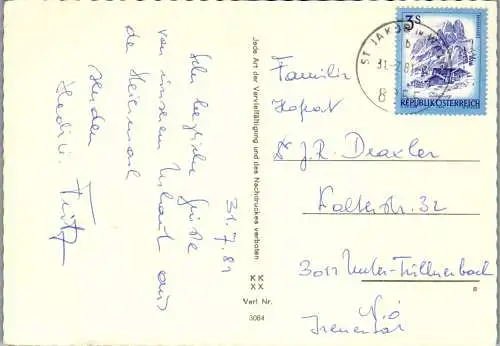 31.7.81
Sehr herzliche Grüße
von unserem Urlaub aus
der Steiermark
senden
Hedi u. Fritz
Jede Art der Vervielfältigung und des Nachdruckes verboten
KK
XX
Verl Nr.
3064
3S
REPUBLIK ÖSTERREICH
ST. JAKOB IM
31.-7.81
8255
Familie
Hofrat
J. R. Draxler
Kalterstr. 32
3011 Unter-Tullnerbach
N.Ö